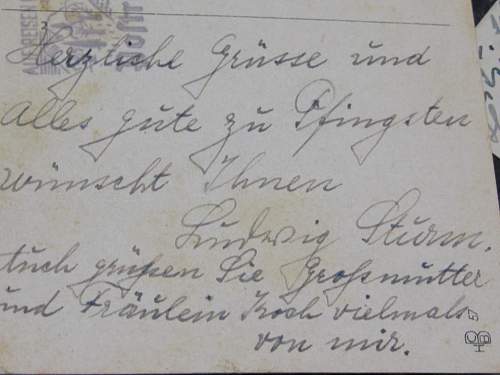 Herzliche Grüsse und
alles gute zu Pfingsten
wünscht Ihnen
Ludwig Sturm.
tuch grüßen Sie Großmutter
und Fräulein Koch vielmals
von mir.